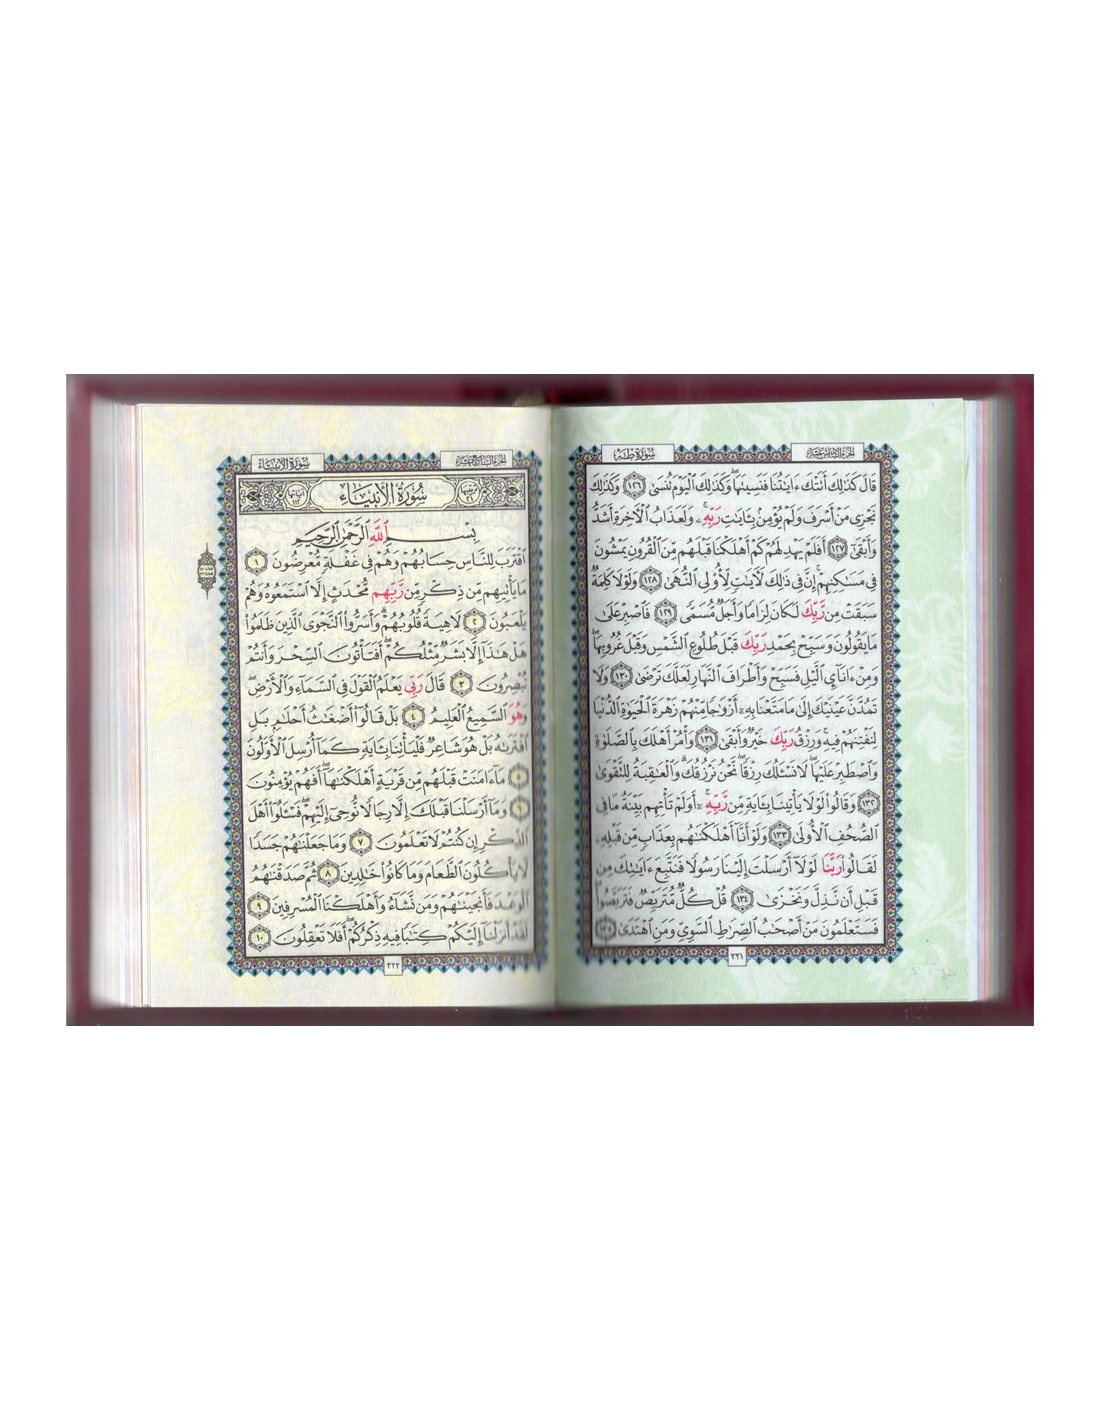 الجزء السادس عشر
سورة طه
قَالَ كَذَٰلِكَ أَتَتْكَ ءَايَٰتُنَا فَنَسِينَهَا ۖ وَكَذَٰلِكَ ٱلْيَوْمَ تُنسَىٰ ١٢٦ وَكَذَٰلِكَ
نَجْزِى مَنْ أَسْرَفَ وَلَمْ يُؤْمِنۢ بِـَٔايَٰتِ رَبِّهِۦ ۚ وَلَعَذَابُ ٱلْـَٔاخِرَةِ أَشَدُّ
وَأَبْقَىٰٓ ١٢٧ أَفَلَمْ يَهْدِ لَهُمْ كَمْ أَهْلَكْنَا قَبْلَهُم مِّنَ ٱلْقُرُونِ يَمْشُونَ
فِى مَسَٰكِنِهِمْ ۗ إِنَّ فِى ذَٰلِكَ لَـَٔايَٰتٍ لِّأُو۟لِى ٱلنُّهَىٰ ١٢٨ وَلَوْلَا كَلِمَةٌ
سَبَقَتْ مِن رَّبِّكَ لَكَانَ لِزَامًا وَأَجَلٌ مُّسَمًّى ١٢٩ فَٱصْبِرْ عَلَىٰ
مَا يَقُولُونَ وَسَبِّحْ بِحَمْدِ رَبِّكَ قَبْلَ طُلُوعِ ٱلشَّمْسِ وَقَبْلَ غُرُوبِهَا ۖ
وَمِنْ ءَانَآئِ ٱلَّيْلِ فَسَبِّحْ وَأَطْرَافَ ٱلنَّهَارِ لَعَلَّكَ تَرْضَىٰ ١٣٠ وَلَا
تَمُدَّنَّ عَيْنَيْكَ إِلَىٰ مَا مَتَّعْنَا بِهِۦٓ أَزْوَٰجًا مِّنْهُمْ زَهْرَةَ ٱلْحَيَوٰةِ ٱلدُّنْيَا
لِنَفْتِنَهُمْ فِيهِ ۚ وَرِزْقُ رَبِّكَ خَيْرٌ وَأَبْقَىٰ ١٣١ وَأْمُرْ أَهْلَكَ بِٱلصَّلَوٰةِ
وَٱصْطَبِرْ عَلَيْهَا ۖ لَا نَسْـَٔلُكَ رِزْقًا ۖ نَّحْنُ نَرْزُقُكَ ۗ وَٱلْعَٰقِبَةُ لِلتَّقْوَىٰ
١٣٢ وَقَالُوا۟ لَوْلَا يَأْتِينَا بِـَٔايَةٍ مِّن رَّبِّهِۦٓ ۚ أَوَلَمْ تَأْتِهِم بَيِّنَةُ مَا فِى
ٱلصُّحُفِ ٱلْأُولَىٰ ١٣٣ وَلَوْ أَنَّآ أَهْلَكْنَٰهُم بِعَذَابٍ مِّن قَبْلِهِۦ
لَقَالُوا۟ رَبَّنَا لَوْلَآ أَرْسَلْتَ إِلَيْنَا رَسُولًا فَنَتَّبِعَ ءَايَٰتِكَ مِن
قَبْلِ أَن نَّذِلَّ وَنَخْزَىٰ ١٣٤ قُلْ كُلٌّ مُّتَرَبِّصٌ فَتَرَبَّصُوا۟ ۖ
فَسَتَعْلَمُونَ مَنْ أَصْحَٰبُ ٱلصِّرَٰطِ ٱلسَّوِىِّ وَمَنِ ٱهْتَدَىٰ ١٣٥
٣٢١
الجزء السابع عشر
سورة الأنبياء
سُورَةُ الأَنبِيَاءِ
ترتيبها ٢١
آياتها ١١٢
بِسْمِ ٱللَّهِ ٱلرَّحْمَٰنِ ٱلرَّحِيمِ
ٱقْتَرَبَ لِلنَّاسِ حِسَابُهُمْ وَهُمْ فِى غَفْلَةٍ مُّعْرِضُونَ ١
مَا يَأْتِيهِم مِّن ذِكْرٍ مِّن رَّبِّهِم مُّحْدَثٍ إِلَّا ٱسْتَمَعُوهُ وَهُمْ
يَلْعَبُونَ ٢ لَاهِيَةً قُلُوبُهُمْ ۗ وَأَسَرُّوا۟ ٱلنَّجْوَى ٱلَّذِينَ ظَلَمُوا۟
هَلْ هَٰذَآ إِلَّا بَشَرٌ مِّثْلُكُمْ ۖ أَفَتَأْتُونَ ٱلسِّحْرَ وَأَنتُمْ
تُبْصِرُونَ ٣ قَالَ رَبِّى يَعْلَمُ ٱلْقَوْلَ فِى ٱلسَّمَآءِ وَٱلْأَرْضِ ۖ
وَهُوَ ٱلسَّمِيعُ ٱلْعَلِيمُ ٤ بَلْ قَالُوٓا۟ أَضْغَٰثُ أَحْلَٰمٍۭ بَلِ
ٱفْتَرَىٰهُ بَلْ هُوَ شَاعِرٌ فَلْيَأْتِنَا بِـَٔايَةٍ كَمَآ أُرْسِلَ ٱلْأَوَّلُونَ
٥ مَآ ءَامَنَتْ قَبْلَهُم مِّن قَرْيَةٍ أَهْلَكْنَٰهَآ ۖ أَفَهُمْ يُؤْمِنُونَ
٦ وَمَآ أَرْسَلْنَا قَبْلَكَ إِلَّا رِجَالًا نُّوحِىٓ إِلَيْهِمْ ۖ فَسْـَٔلُوٓا۟ أَهْلَ
ٱلذِّكْرِ إِن كُنتُمْ لَا تَعْلَمُونَ ٧ وَمَا جَعَلْنَٰهُمْ جَسَدًا
لَّا يَأْكُلُونَ ٱلطَّعَامَ وَمَا كَانُوا۟ خَٰلِدِينَ ٨ ثُمَّ صَدَقْنَٰهُمُ
ٱلْوَعْدَ فَأَنجَيْنَٰهُمْ وَمَن نَّشَآءُ وَأَهْلَكْنَا ٱلْمُسْرِفِينَ ٩
لَقَدْ أَنزَلْنَآ إِلَيْكُمْ كِتَٰبًا فِيهِ ذِكْرُكُمْ ۖ أَفَلَا تَعْقِلُونَ ١٠
٣٢٢